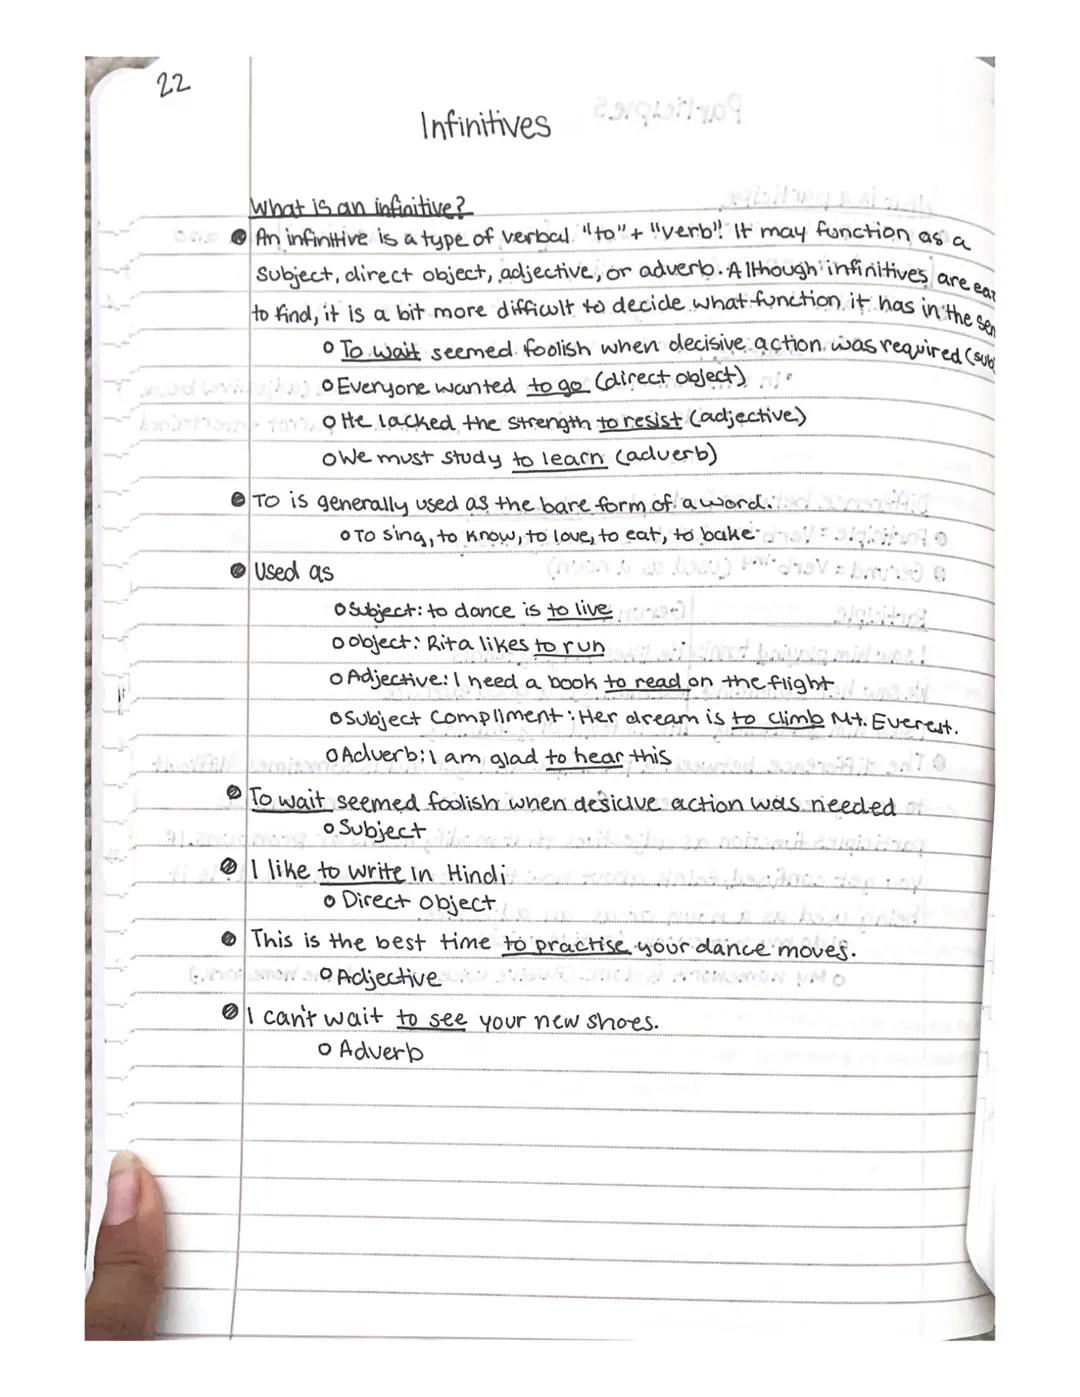 22
Infinitives
What is an infinitive?
An infinitive is a type of verbal "to" + "verb". It may function as a
subject, direct object, adjective, or adverb. Although infinitives are
to find, it is a bit more difficult to decide what function it has in the
To wait seemed foolish when decisive action was required (
Everyone wanted to go (direct object)
He lacked the strength to resist (adjective)
We must study to learn (adverb)
TO is generally used as the bare form of a word.
To sing, to know, to love, to eat, to bake
Used as
Subject: to dance is to live
Object: Rita likes to run
Adjective: I need a book to read on the flight
Subject Compliment: Her dream is to climb Mt. Everest.
Adverb: I am glad to hear this
To wait seemed foolish when desicive action was needed
Subject
I like to write in Hindi
Direct Object
This is the best time to practise your dance moves.
Adjective
I can't wait to see your new shoes.
Adverb